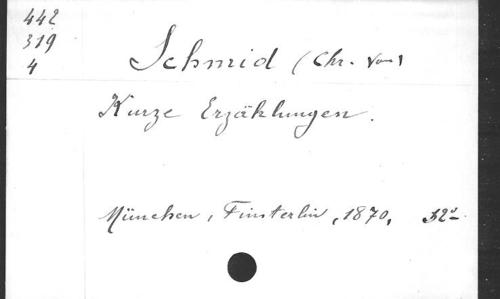 442
319
4
Schmid (Chr. von)
Kurze Erzählungen.
München, Finsterlin, 1870,